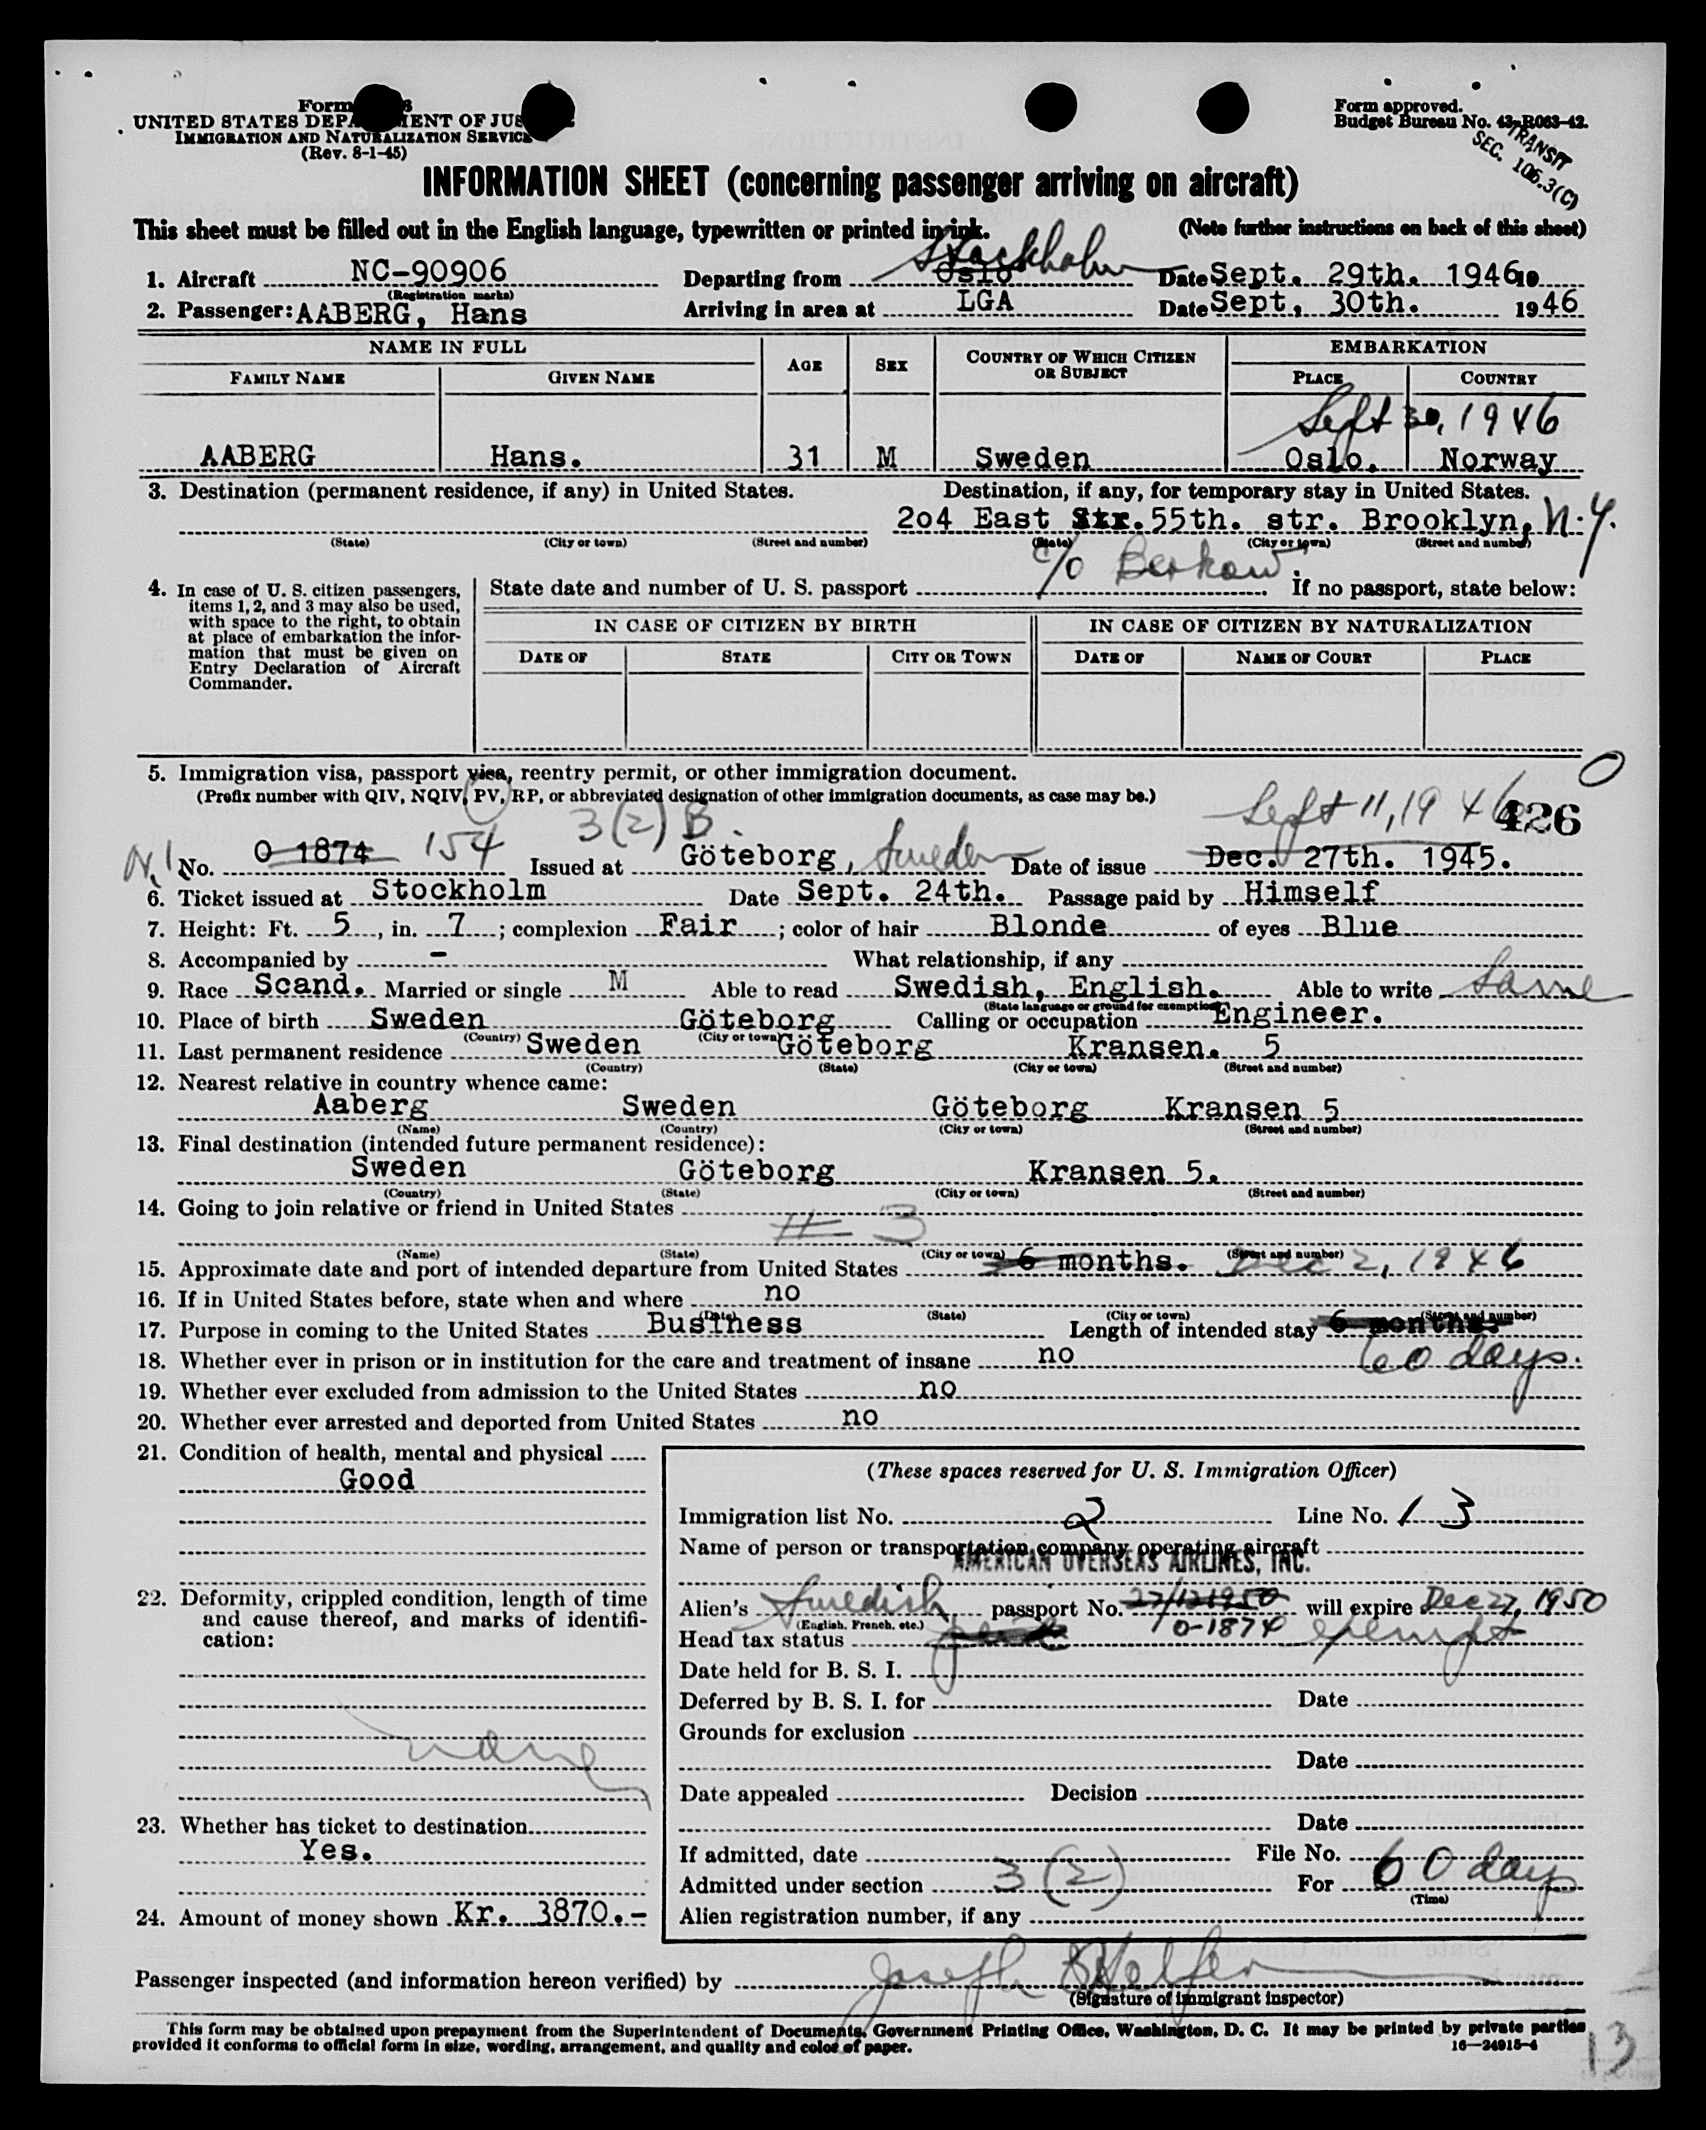 Form
UNITED STATES DEPARTMENT OF JUSTICE
IMMIGRATION AND NATURALIZATION SERVICE
(Rev. 8-1-45)
Form approved.
Budget Bureau No. 43-R063-42.
TRANSIT
SEC. 106.3(C)
INFORMATION SHEET (concerning passenger arriving on aircraft)
This sheet must be filled out in the English language, typewritten or printed in ink. (Note further instructions on back of this sheet)
Stockholm
1. Aircraft NC-90906 Departing from Oslo Date Sept. 29th. 1946 19
(Registration marks)
2. Passenger: AABERG, Hans Arriving in area at LGA Date Sept. 30th. 1946
NAME IN FULL AGE SEX COUNTRY OF WHICH CITIZEN OR SUBJECT EMBARKATION
FAMILY NAME GIVEN NAME PLACE COUNTRY
Sept 30, 1946
AABERG Hans. 31 M Sweden Oslo. Norway
3. Destination (permanent residence, if any) in United States. Destination, if any, for temporary stay in United States.
204 East Str. 55th. str. Brooklyn, N.Y.
(State) (City or town) (Street and number) (State) (City or town) (Street and number)
c/o Berkow
4. In case of U. S. citizen passengers, items 1, 2, and 3 may also be used, with space to the right, to obtain at place of embarkation the information that must be given on Entry Declaration of Aircraft Commander.
State date and number of U. S. passport If no passport, state below:
IN CASE OF CITIZEN BY BIRTH IN CASE OF CITIZEN BY NATURALIZATION
DATE OF STATE CITY OR TOWN DATE OF NAME OF COURT PLACE
5. Immigration visa, passport visa, reentry permit, or other immigration document.
(Prefix number with QIV, NQIV, PV, RP, or abbreviated designation of other immigration documents, as case may be.)
0
3(2) B. Sept 11, 1946 426
No. 0 1874 154 Issued at Göteborg, Sweden Date of issue Dec. 27th. 1945.
6. Ticket issued at Stockholm Date Sept. 24th. Passage paid by Himself
7. Height: Ft. 5, in. 7; complexion Fair; color of hair Blonde of eyes Blue
8. Accompanied by - What relationship, if any
9. Race Scand. Married or single M Able to read Swedish, English. Able to write Same
(State language or ground for exemption)
10. Place of birth Sweden Göteborg Calling or occupation Engineer.
(Country) (City or town)
11. Last permanent residence Sweden Göteborg Kransen. 5
(Country) (State) (City or town) (Street and number)
12. Nearest relative in country whence came:
Aaberg Sweden Göteborg Kransen 5
(Name) (Country) (City or town) (Street and number)
13. Final destination (intended future permanent residence):
Sweden Göteborg Kransen 5.
(Country) (State) (City or town) (Street and number)
14. Going to join relative or friend in United States
# 3
(Name) (State) (City or town) (Street and number)
15. Approximate date and port of intended departure from United States 6 months. Dec 2, 1946
16. If in United States before, state when and where no
(Date) (State) (City or town) (Street and number)
17. Purpose in coming to the United States Business Length of intended stay 6 months.
60 days.
18. Whether ever in prison or in institution for the care and treatment of insane no
19. Whether ever excluded from admission to the United States no
20. Whether ever arrested and deported from United States no
21. Condition of health, mental and physical
Good
22. Deformity, crippled condition, length of time and cause thereof, and marks of identification:
none
23. Whether has ticket to destination
Yes.
24. Amount of money shown Kr. 3870.-
(These spaces reserved for U. S. Immigration Officer)
Immigration list No. 2 Line No. 13
Name of person or transportation company operating aircraft
AMERICAN OVERSEAS AIRLINES, INC.
Alien's Swedish passport No. 27/12 1950 will expire Dec 27, 1950
(English, French, etc.) 0-1874
Head tax status exempt
Date held for B. S. I.
Deferred by B. S. I. for Date
Grounds for exclusion
Date
Date appealed Decision
Date
If admitted, date File No.
Admitted under section 3(2) For 60 days
(Time)
Alien registration number, if any
Passenger inspected (and information hereon verified) by Joseph Helfer
(Signature of immigrant inspector)
This form may be obtained upon prepayment from the Superintendent of Documents, Government Printing Office, Washington, D. C. It may be printed by private parties
provided it conforms to official form in size, wording, arrangement, and quality and color of paper. 16—24915-4
13